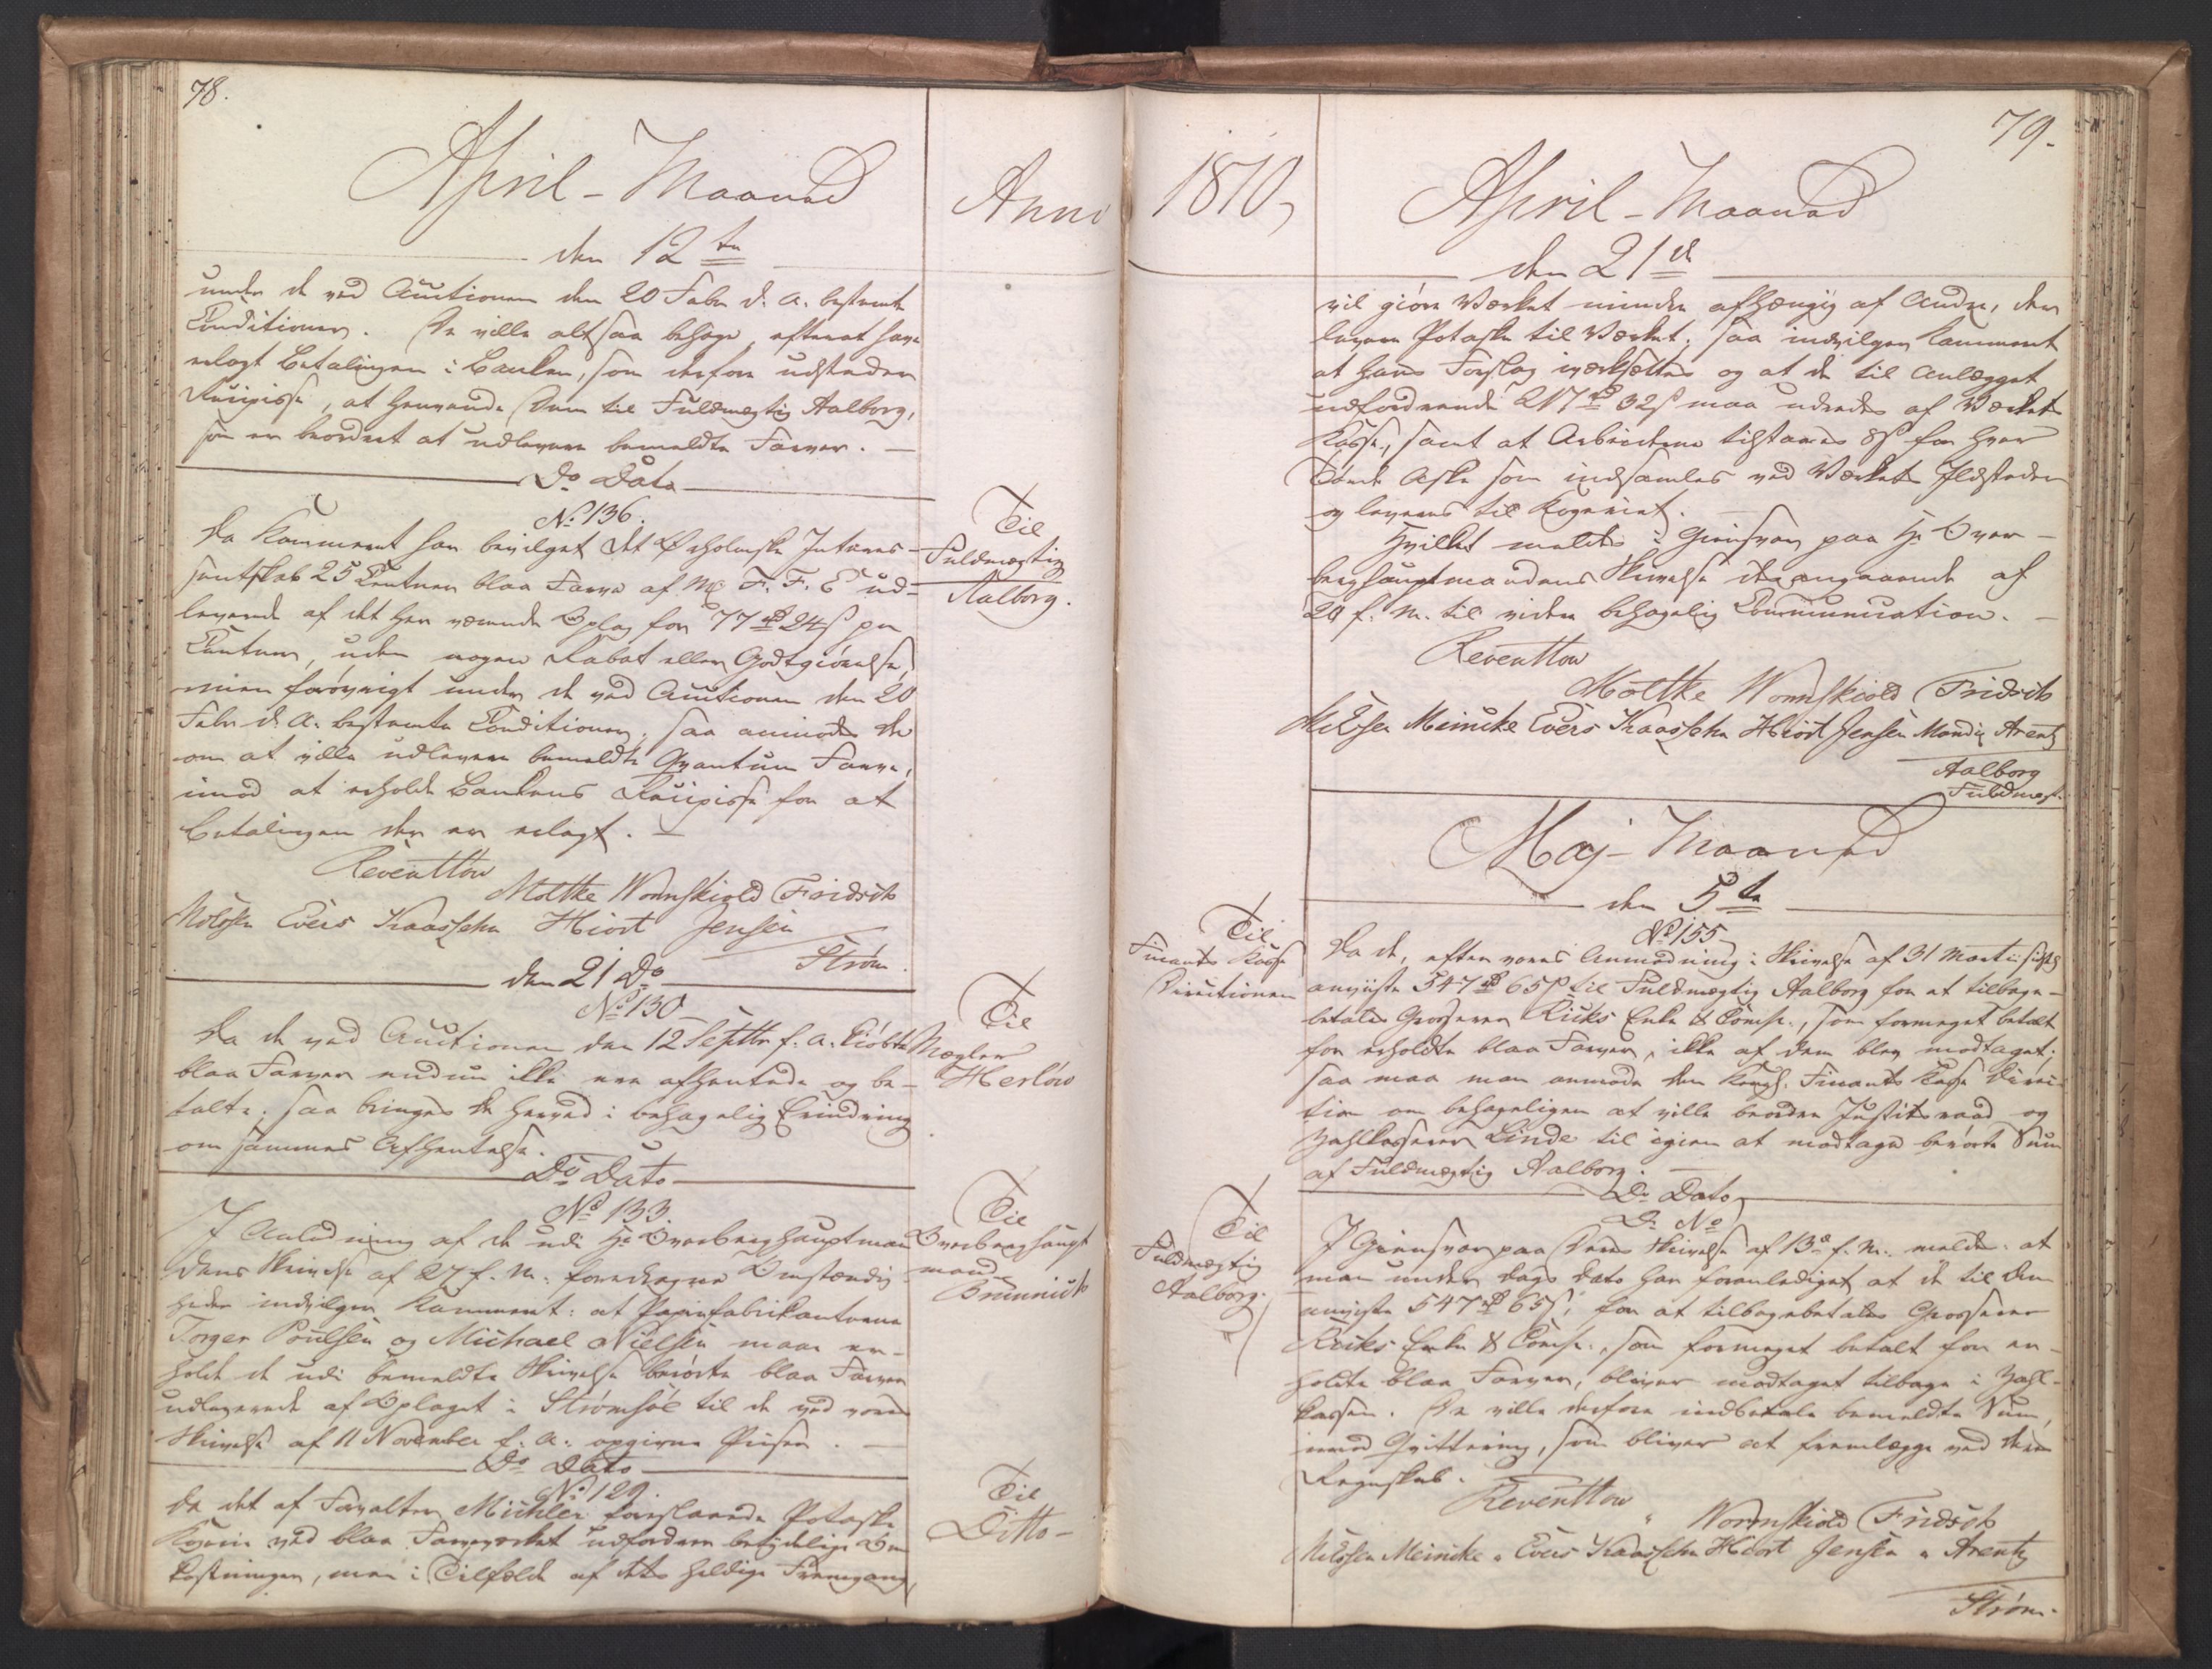 78.
April-Maaned
den 12te
under de ved Auctionen den 20 Febr d. A. bestemte
Conditioner. De ville altsaa behage, efterat have
erlagt Betalingen i Banken, som derfore udsteder
Recipisse, at henvende Dem til Fuldmægtig Aalborg,
som er beordret at udlevere bemeldte Farver. —
Do Dato
No 136.
Til
Fuldmægtig
Aalborg.
Da Kammeret har bevilget det Ørholmske Interes-
sentskab 25 Centner blaa Farve af No F. F. E ud-
leverede af det her værende Oplag for 77 rd 24 s pr
Centner, uden nogen Rabat eller Godtgiørelse,
men forøvrigt under de ved Auctionen den 20
Febr d. A. bestemte Conditioner; saa anmodes De
om at ville udlevere bemeldte Qvantum Farve,
imod at erholde Bankens Recipisse for at
Betalingen der er erlagt. —
Reventlow
Moltke Wormskiold Fridsch
Nilssen Evers Knaasschu Hiort Jensen
Strøm.
den 21 Do
No 130
Til
Mægler
Herløw
Da de ved Auctionen den 12 Septbr f. A. kiøbte
blaa Farver endnu ikke ere afhentede og be-
talte; saa bringes De herved i behagelig Erindring
om sammes Afhentelse.
Do Dato
No 133
Til
Overberghaupt
mand
Brünnich
I Anledning af de udi Hr Overberghauptman
dens Skrivelse af 27 f. M. foredragne Omstændig-
heder indvilger Kammeret: at Papirfabrikanterne
Torger Poulsen og Michael Nielsen maae er-
holde de udi bemeldte Skrivelse berørte blaa Farver
udleverede af Oplaget i Strømsøe til de ved vores
Skrivelse af 11 November f. A. opgivne Priser. —
Do Dato
No 129.
Til
Ditto-
Da det af Forvalter Michler foreslaaede Potaske
Kogerie ved blaa Farveværket udfordrer betydelige Om
kostninger, men i Tilfælde af dets heldige Fremgang,
Anno 1810,
79.
April-Maaned
den 21de
vil giøre Værket mindre afhængig af Andre, der
levere Potaske til Værket; saa indvilger Kammeret
at hans Forslag iværksættes og at de til Anlægget
udfordrende 217 rd 32 s maa udredes af Værkets
Kasse, samt at Arbeiderne tilstaaes 8 s for hver
Tønde Aske som indsamles ved Værkets Ildsteder
og leveres til Kogeriet.
Hvilket meldes i Giensvar paa Hr Over-
berghauptmandens Skrivelse desangaaende af
20 f. M. til videre behagelig Communication. —
Reventlow
Moltke Wormskiold Fridsch
Nilssen Meincke Evers Knaasschu Hiort Jensen Mandix Arentz
Aalborg
Fuldmægt.
Maj-Maaned
den 5te
No 155
Til
Finants Kasse
Directionen
Da de, efter vores Anmodning i Skrivelse af 31 Martii sidstl
anviiste 547 rd 65 s til Fuldmægtig Aalborg for at tilbage-
betales Grosserer Ricks Enke & Comp., som formeget betalt
for erholdte blaa Farver, ikke af dem blev modtaget;
saa maa man anmode den Kongl. Finants Kasse Direc-
tion om behageligen at ville beordre Justitsraad og
Zahlkasserer Linde til igien at modtage berørte Sum
af Fuldmægtig Aalborg. —
Do Dato
Do No
Til
Fuldmægtig
Aalborg.
I Giensvar paa Deres Skrivelse af 13de f. M. meldes: at
man under Dags Dato har foranlediget at de til Dem
anviiste 547 rd 65 s, for at tilbagebetales Grosserer
Ricks Enke & Comp., som formeget betalt for er-
holdte blaa Farver, bliver modtaget tilbage i Zahl-
kassen. De ville derfore indbetale bemeldte Sum,
imod Qvittering, som bliver at fremlægge ved Deres
Regnskab.
Reventlow " Wormskiold Fridsch
Nilssen Meincke " Evers Knaasschu Hiort Jensen " Arentz
Strøm.